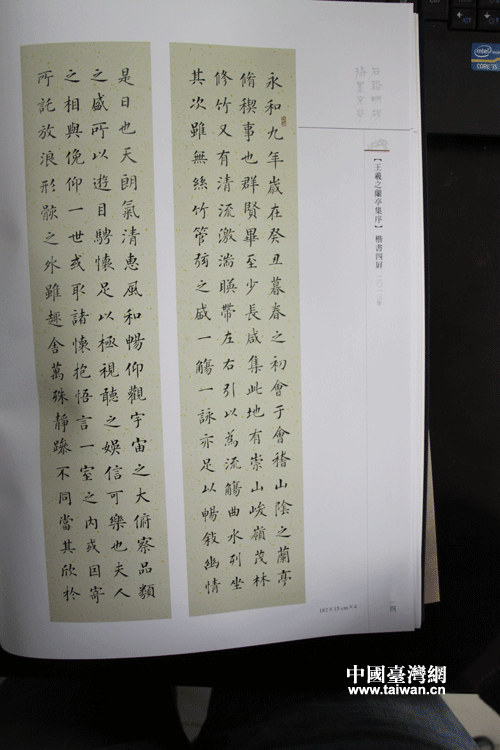 【王羲之蘭亭集序】楷書四屏
永和九年歲在癸丑暮春之初會于會稽山陰之蘭亭
脩禊事也群賢畢至少長咸集此地有崇山峻嶺茂林
修竹又有清流激湍暎帶左右引以為流觴曲水列坐
其次雖無絲竹管弦之盛一觴一詠亦足以暢敘幽情
是日也天朗氣清惠風和暢仰觀宇宙之大俯察品類
之盛所以遊目騁懷足以極視聽之娛信可樂也夫人
之相與俛仰一世或取諸懷抱悟言一室之內或因寄
所託放浪形骸之外雖趣舍萬殊靜躁不同當其欣於
一四
intel
CORE i5
中國臺灣網
www.taiwan.cn